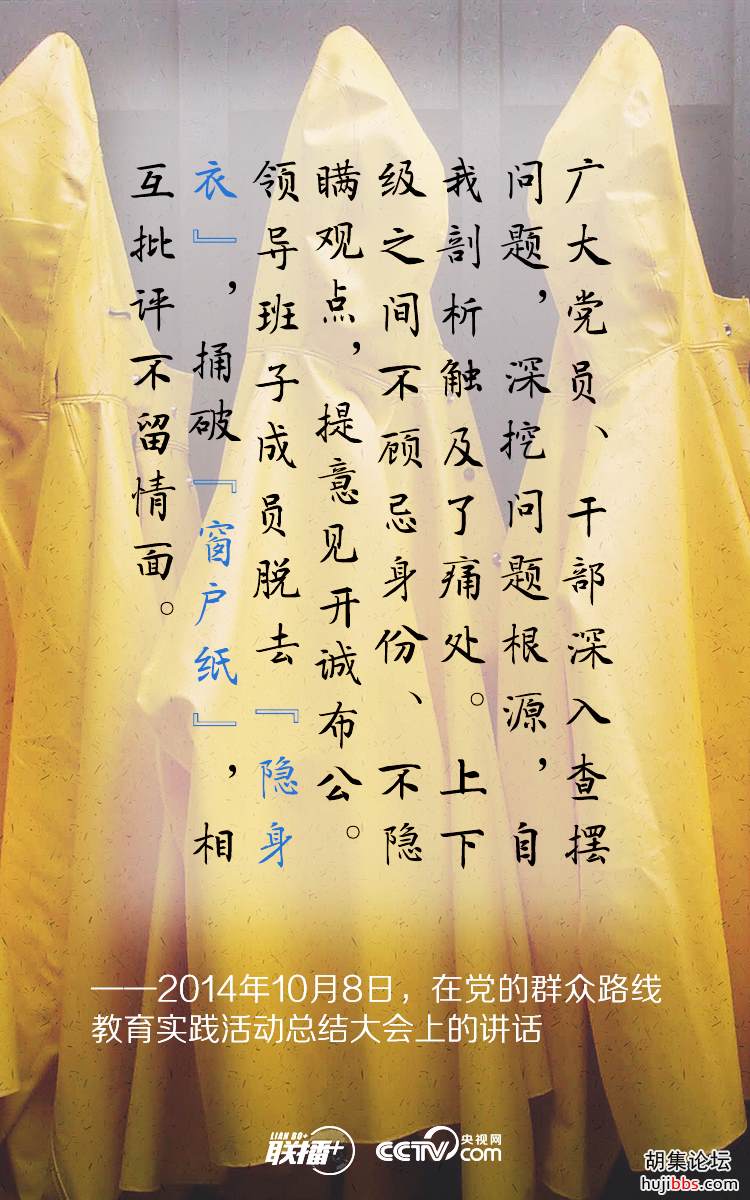 广大党员、干部深入查摆
问题，深挖问题根源，自
我剖析触及了痛处。上下
级之间不顾忌身份、不隐
瞒观点，提意见开诚布公。
领导班子成员脱去『隐身
衣』，捅破『窗户纸』，相
互批评不留情面。
——2014年10月8日，在党的群众路线
教育实践活动总结大会上的讲话
LIAN BO+
联播+
CCTV.com 央视网
胡集论坛
hujibbs.com